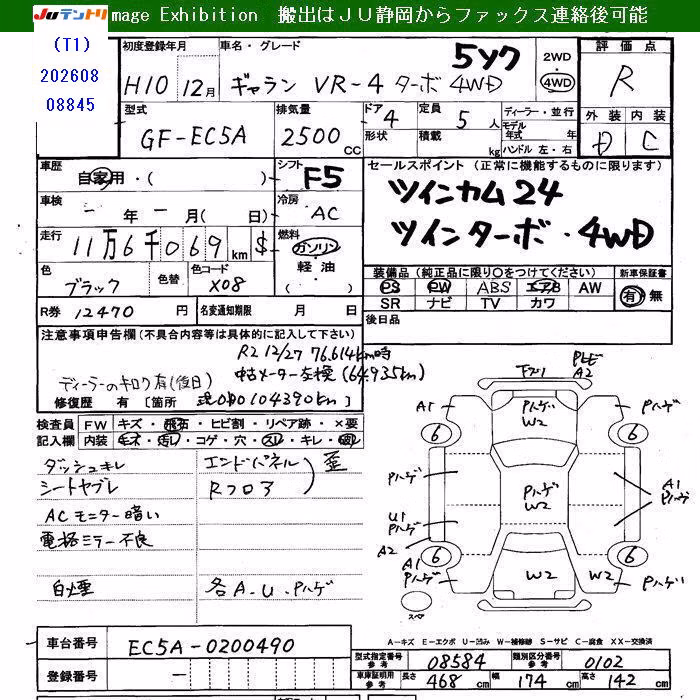 Juテントリ mage Exhibition 搬出はJU静岡からファックス連絡後可能
(T1)
202608
08845
初度登録年月 車名・グレード 5ツク 2WD 4WD 評価点
H10 12月 ギャラン VR-4 ターボ 4WD R
型式 排気量 ドア 4 定員 5人 ディーラー・並行 外装 内装
GF-EC5A 2500cc 形状 積載 kg モデル年式 年 ハンドル 左・右 D C
車歴 自家用・( ) シフト F5 セールスポイント (正常に機能するものに限ります)
車検 ー年 ー月(ー日) 冷房 AC ツインカム24
走行 11万6千069km $ 燃料 ガソリン ツインターボ・4WD
色 ブラック 色替 色コード X08 軽油 ( )
装備品(純正品に限り○をつけてください) 新車保証書
PS PW ABS エアB AW 有 無
SR ナビ TV カワ
R券 12470円 名変通知期限 月 日 後日品
注意事項申告欄(不具合内容等は具体的に記入して下さい)
R2 12/27 76.614km時
ディーラーのキロク有(後日) 中古メーター交換(64935km)
修復歴 有 [箇所 現ODO104390km]
検査員記入欄 FW キズ・飛石・ヒビ割・リペア跡・×要
内装 キズ・汚レ・コゲ・穴・スレ・キレ・
ダッシュキレ エンドパネル 歪
シートヤブレ Rフロア
ACモニター暗い
電格ミラー不良
白煙 各A.U.Pハゲ
A2
A1 PハゲW2 Pハゲ
6 6
Pハゲ PハゲW2 A1 Pハゲ
U1 Pハゲ
A2
A1 Pハゲ 6 6
W2 W2 Pハゲ
スペア
A-キズ E-エクボ U-凹み W-補修跡 S-サビ C-腐食 XX-交換済
車台番号 EC5A-0200490
登録番号 ー
型式指定番号 参考 08584 類別区分番号 参考 0102
車庫証明用 参考 長さ 468cm 幅 174cm 高さ 142cm